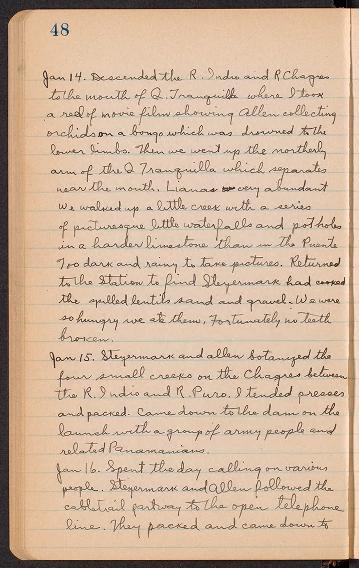 48
Jan 14. Descended the R. Indio and R Chagres
to the mouth of Q. Tranquilla where I took
a reel of movie film showing Allen collecting
orchids on a bongo which was drowned to the
lower limbs. Then we went up the northerly
arm of the Q Tranquilla which separates
near the mouth. Lianas very abundant
We walked up a little creek with a series
of picturesque little waterfalls and potholes
in a harder limestone than in the Puente
Too dark and rainy to take pictures. Returned
to the Station to find Steyermark had cooked
the spilled lentils sand and gravel. We were
so hungry we ate them. Fortunately no teeth
broken.
Jan 15. Steyermark and Allen botanized the
four small creeks on the Chagres between
the R. Indio and R. Puro. I tended presses
and packed. Came down to the dam on the
launch with a group of army people and
related Panamanians.
Jan 16. Spent the day calling on various
people. Steyermark and Allen followed the
cabletrail parkway to the open telephone
line. They packed and came down to